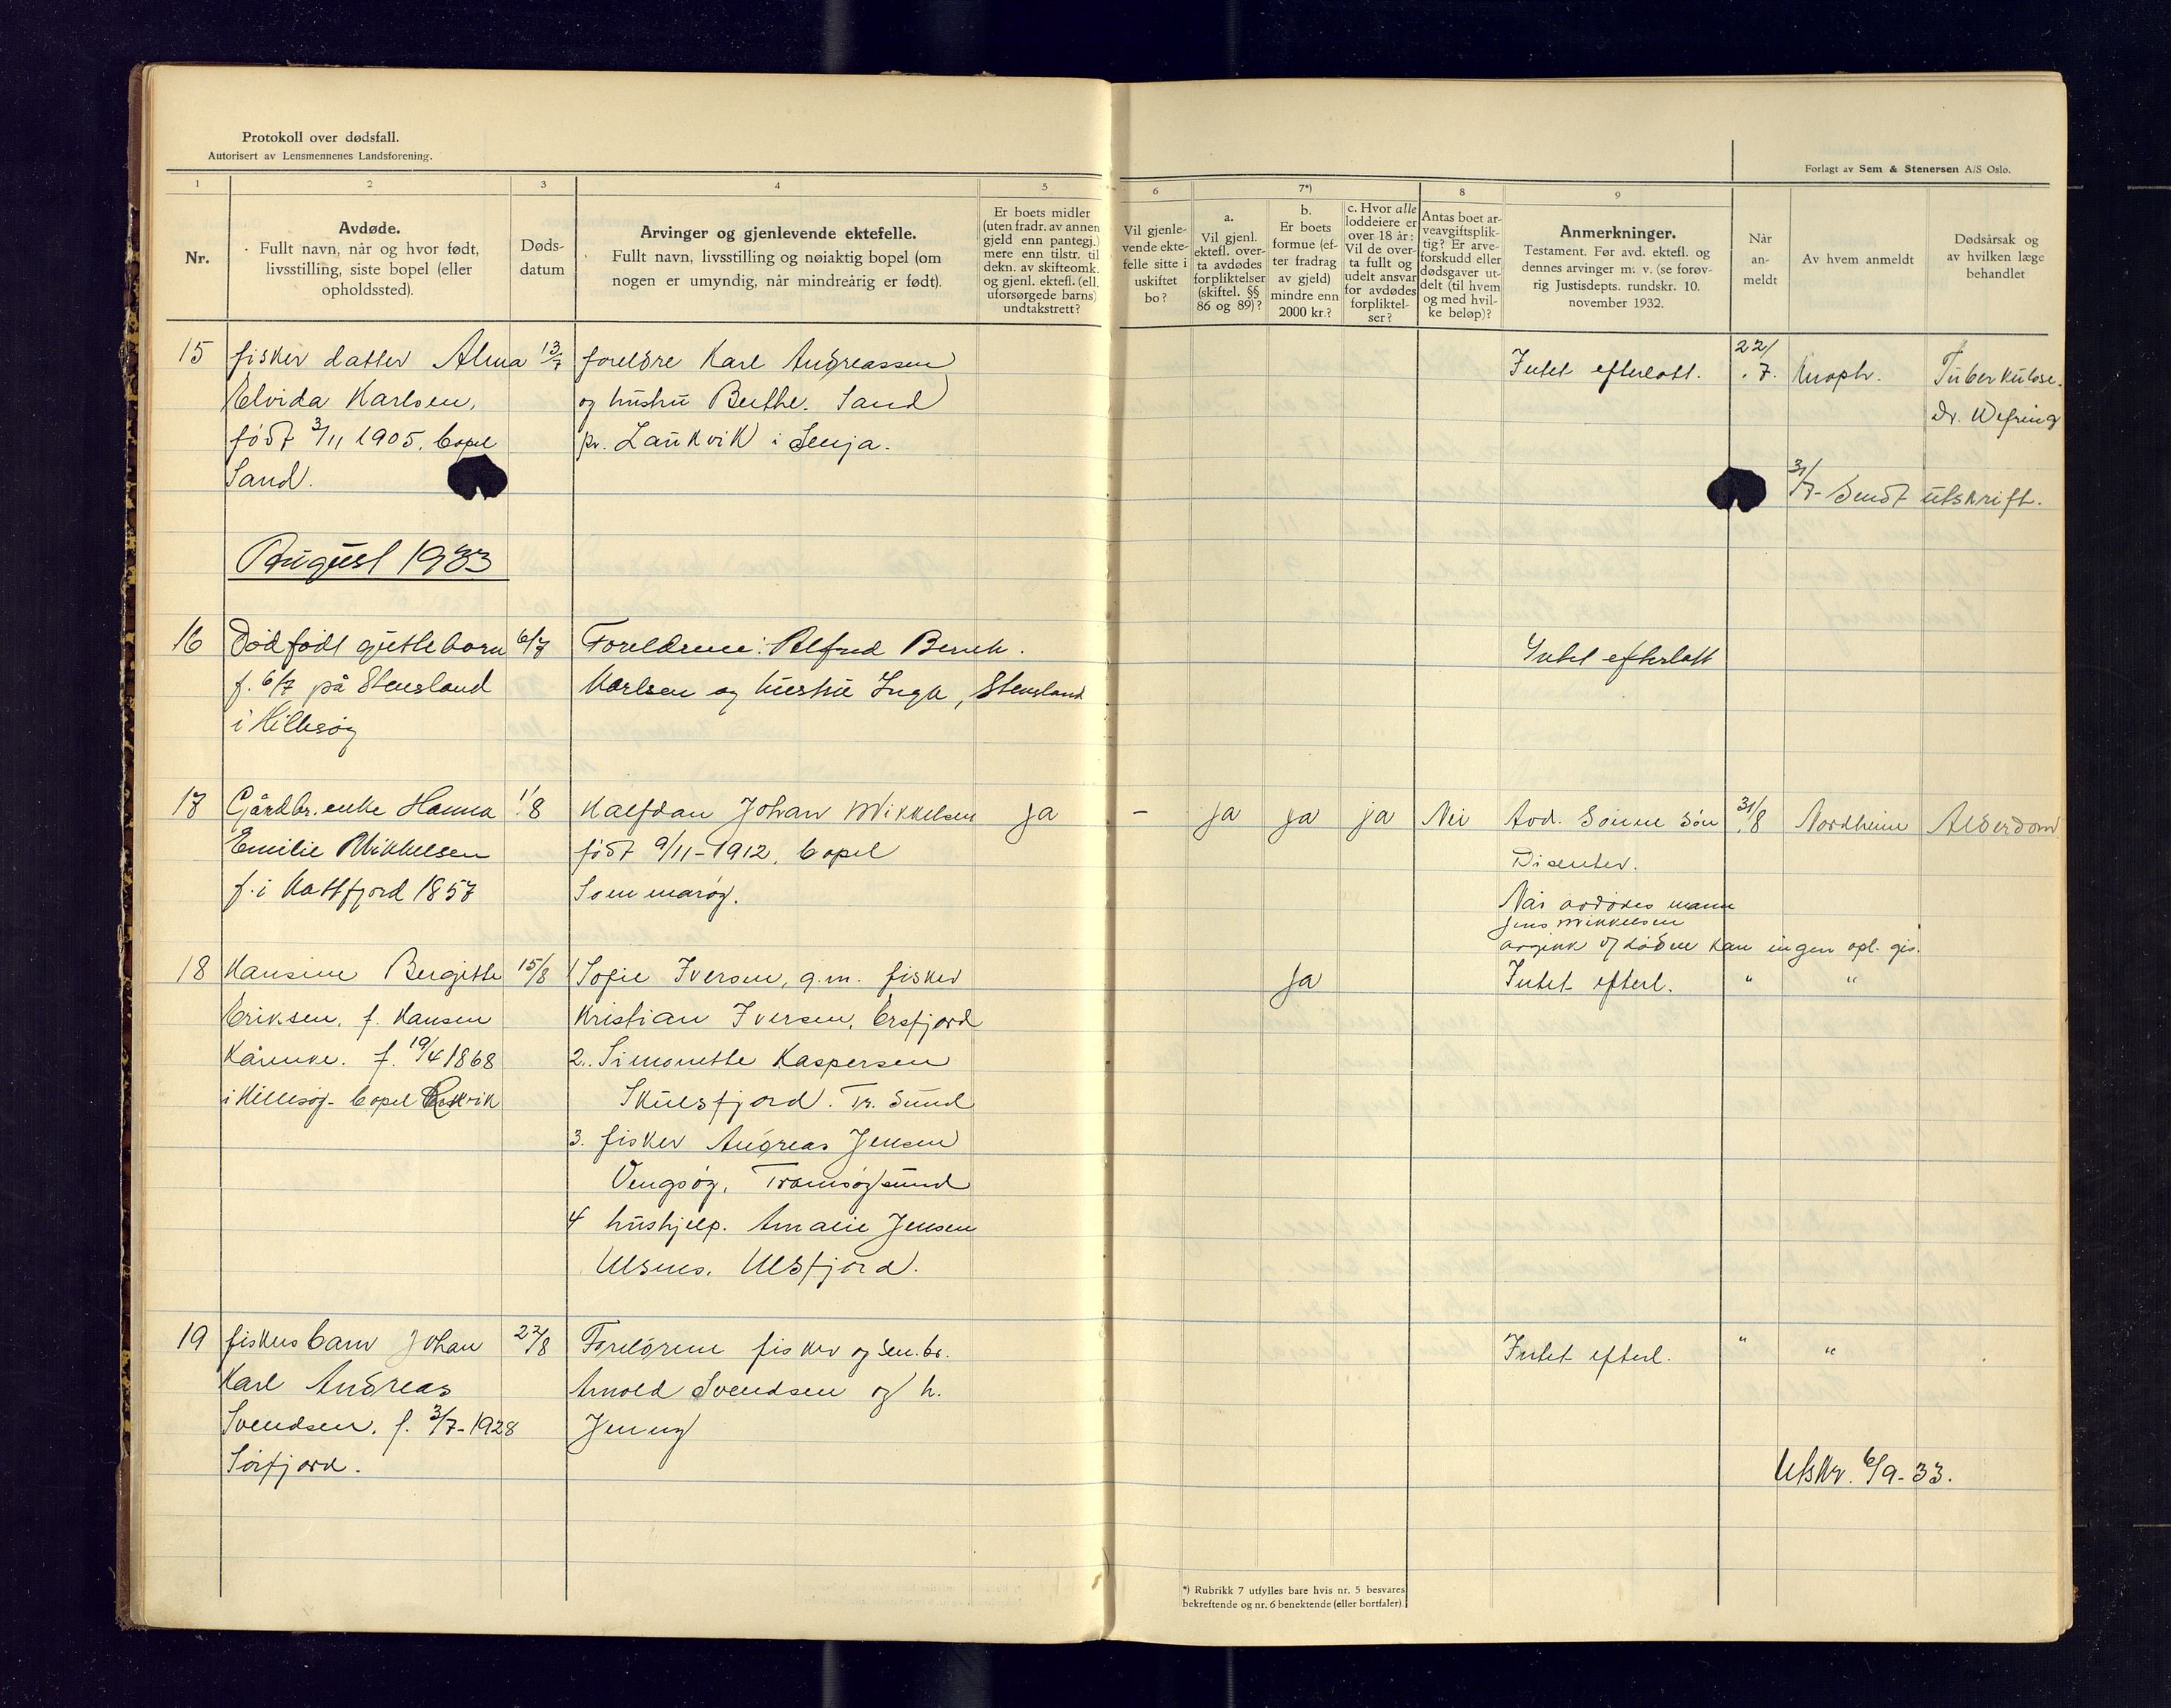 Protokoll over dødsfall.
Autorisert av Lensmennenes Landsforening.
Forlagt av Sem & Stenersen A/S Oslo.
1
2
3
4
5
6
7*)
8
9
Nr.
Avdøde.
Fullt navn, når og hvor født,
livsstilling, siste bopel (eller
opholdssted).
Døds-
datum
Arvinger og gjenlevende ektefelle.
Fullt navn, livsstilling og nøiaktig bopel (om
nogen er umyndig, når mindreårig er født).
Er boets midler
(uten fradr. av annen
gjeld enn pantegj.)
mere enn tilstr. til
dekn. av skifteomk.
og gjenl. ektefl. (ell.
uforsørgede barns)
undtakstrett?
Vil gjenle-
vende ekte-
felle sitte i
uskiftet
bo?
a.
Vil gjenl.
ektefl. over-
ta avdødes
forpliktelser
(skiftel. §§
86 og 89)?
b.
Er boets
formue (ef-
ter fradrag
av gjeld)
mindre enn
2000 kr.?
c. Hvor alle
loddeiere er
over 18 år:
Vil de over-
ta fullt og
udelt ansvar
for avdødes
forpliktel-
ser?
Antas boet ar-
veavgiftsplik-
tig? Er arve-
forskudd eller
dødsgaver ut-
delt (til hvem
og med hvil-
ke beløp)?
Anmerkninger.
Testament. Før avd. ektefl. og
dennes arvinger m. v. (se forøv-
rig Justisdepts. rundskr. 10.
november 1932.
Når
an-
meldt
Av hvem anmeldt
Dødsårsak og
av hvilken læge
behandlet
15 fisker datter Alma 13/7 foreldre Karl Andreassen Intet efterlatt. 22/7. Knoph. Tuberkulose.
Elvida Karlsen, og hustru Berthe. Sand Dr. Wefring
født 3/11 1905. bopel pr. Laukvik i Senja.
Sand. 31/7- Sendt utskrift.
August 1933
16 Dødfødt guttebarn 6/7 Foreldrene: Alfred Bernh. Intet efterlatt
f. 6/7 på Stensland Karlsen og hustru Inga, Stensland
i Hillesøy
17 Gårdbr. enke Hanna 1/8 Halfdan Johan Mikkelsen ja - ja ja ja Nei Avd. sønne søn 31/8 Nordheim Alderdom
Emilie Mikkelsen født 9/11-1912, bopel Disenter.
f. i Kattfjord 1857 Sommarøy. Når avdødes mann
Jens Mikkelsen
avgikk v/ døden kan ingen opl. gis.
18 Hansine Bergitte 15/8 1 Sofie Iversen, g.m. fisker ja Intet efterl. " "
Eriksen, f. Hansen Kristian Iversen, Ersfjord
Kårenke. f. 19/4 1868 2. Simonette Kaspersen
i Hillesøy- bopel Skulsfjord. Tr. Sund
3. fisker Andreas Jensen
Vengsøy, Tromsøysund
4 hushjelp. Amalie Jensen
Ulsnes. Ulsfjord.
19 fiskersbarn Johan 22/8 Foreldrene fisker og Intet efterl. " "
Karl Andreas Arnold Svendsen og h.
Svendsen. f. 3/7-1928 Jenny
Sørfjord.
Utskr. 6/9-33.
*) Rubrikk 7 utfylles bare hvis nr. 5 besvares
bekreftende og nr. 6 benektende (eller bortfaler).